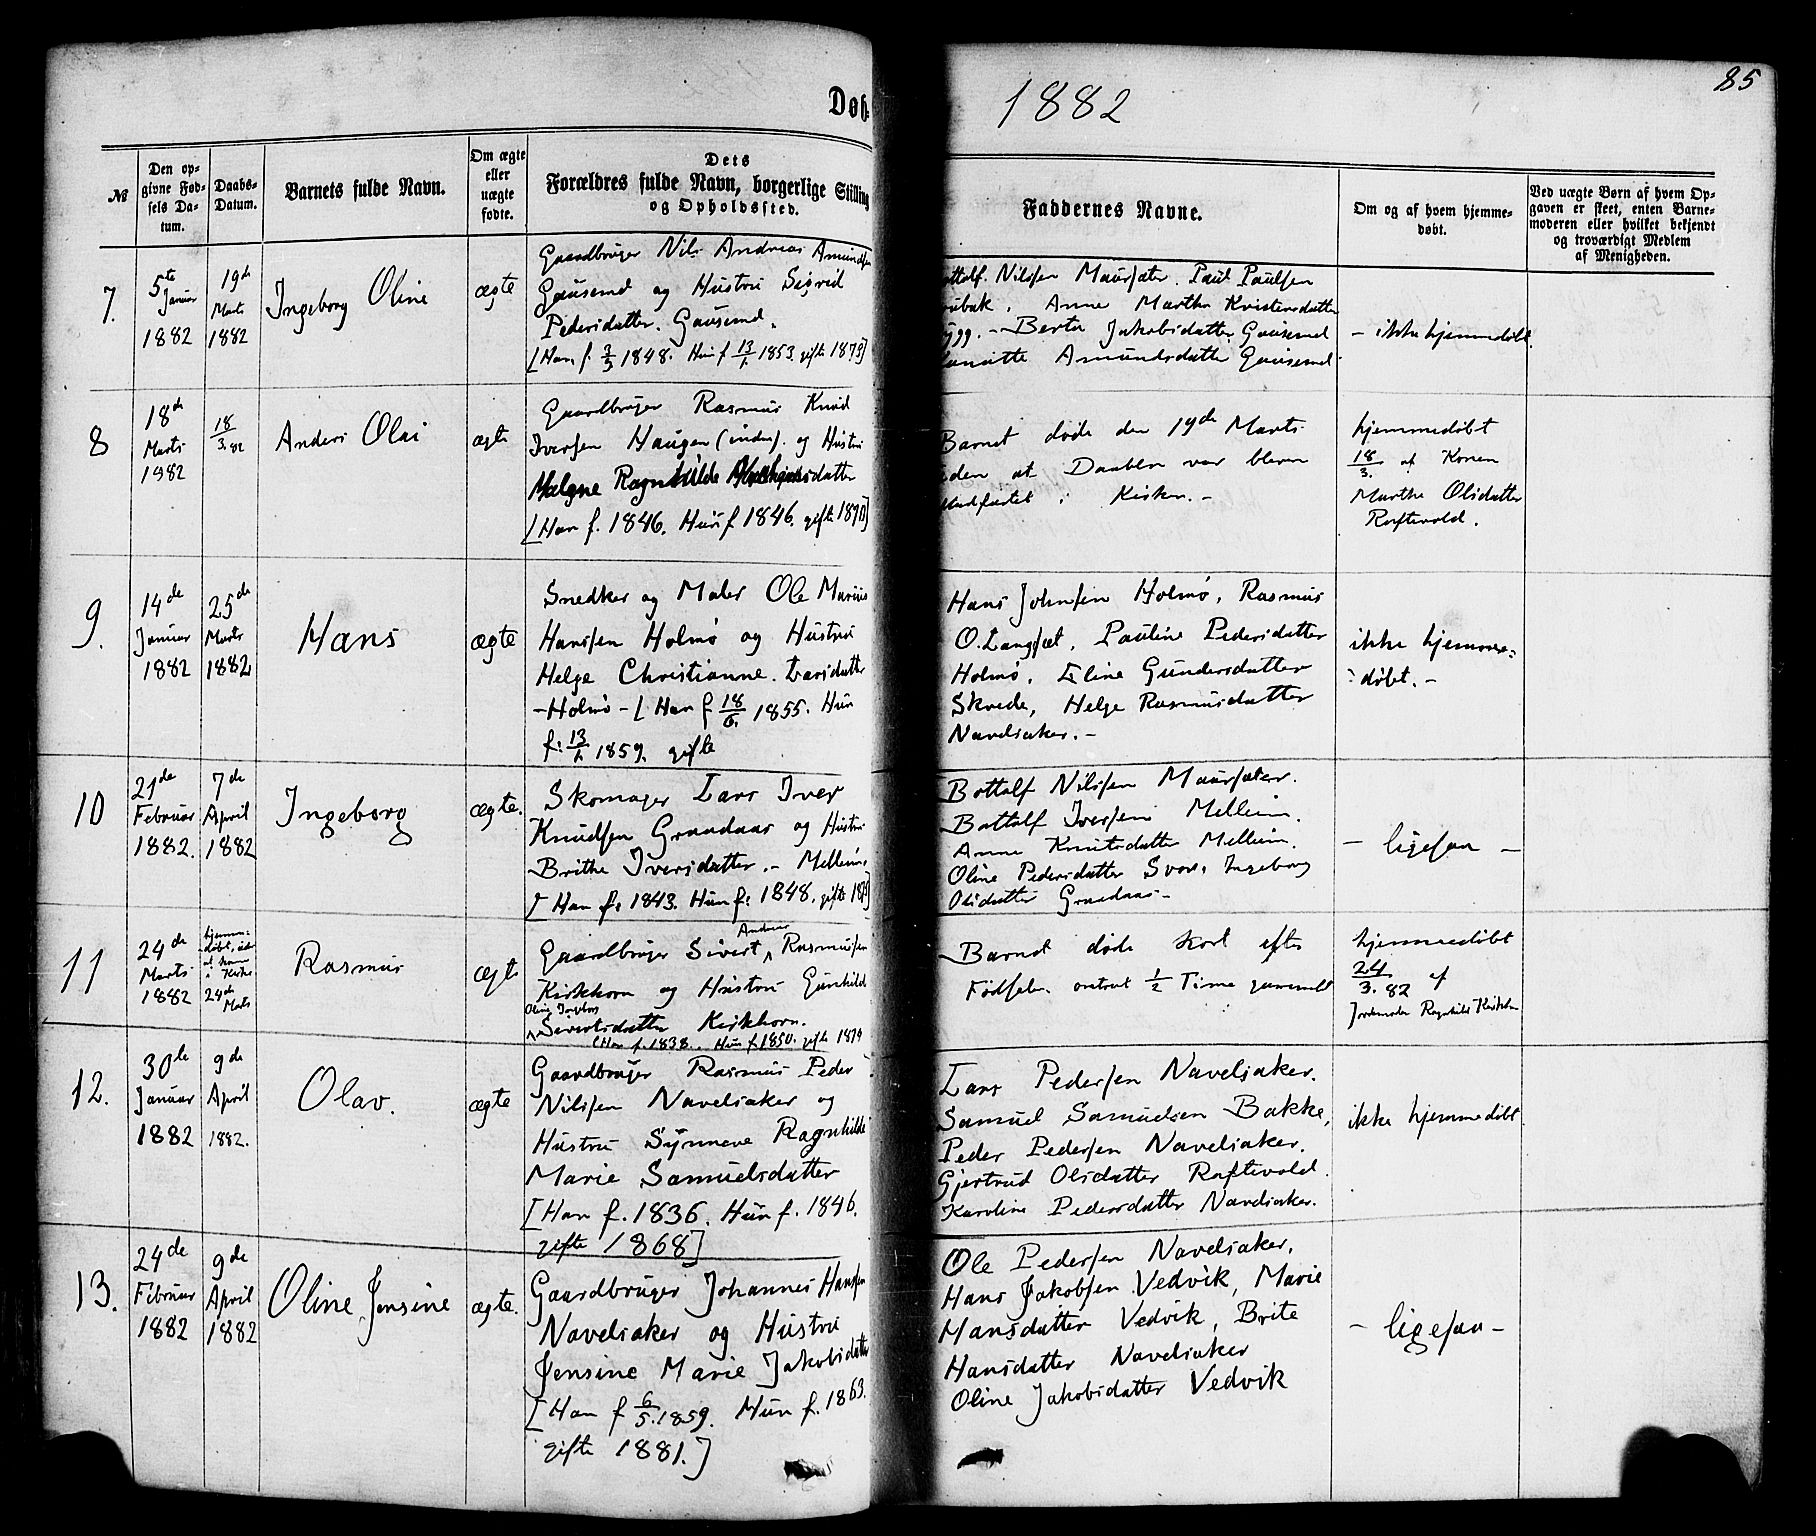 Døb-
1882
85
№
Den op-
givne Fød-
sels Da-
tum.
Daabs-
Datum.
Barnets fulde Navn.
Om ægte
eller
uægte
fødte.
Dets
Forældres fulde Navn, borgerlige Stilling
og Opholdssted.
Faddernes Navne.
Om og af hvem hjemme-
døbt.
Ved uægte Børn af hvem Op-
gaven er skeet, enten Barne-
moderen eller hvilket bekjendt
og troværdigt Medlem
af Menigheden.
7.
5te
Januar
1882
19de
Marts
1882
Ingeborg Oline
ægte
Gaardbruger Nils Andreas Amundsen
Gausemd og Hustru Sigrid
Pedersdatter. Gausemd.
[Han f. 3/3 1848. Hun f 13/1 1853. gifte 1873]
Nilssen Maursæter. Paul Paulsen
Anne Marthe
Berte Jakobsdatter Gausemd
Amundsdatter Gausemd
- ikke hjemmedøbt.
8
18de
Marts
1982
18/3. 82
Anders Olai
ægte
Gaardbruger Rasmus Knud
Iversen Haugen (indre). og Hustru
Malene Ragnhilde
[Han f. 1846. Hun f 1846. gifte 1870]
Barnet døde den 19de Marts
uden at Daaben var bleven
stadfæstet i Kirken. -
hjemmedøbt
18/3. af Konen
Marthe Olsdatter
Raftevold.
9.
14de
Januar
1882
25de
Marts
1882
Hans
ægte
Snedker og Maler Ole Marius
Hanssen Holmø og Hustru
Helge Christianne. Larsdatter
- Holmø - [Han f 18/6. 1855. Hun
f: 13/1 1859. gifte
Hans Johnsen Holmø, Rasmus
O. Langsæt, Pauline Pedersdatter
Holmø, Eline Gundersdatter
Skrede, Helge Rasmusdatter
Navelsaker. -
ikke hjemme-
døbt. -
10
21de
Februar
1882.
7de
April
1882
Ingeborg
ægte.
Skomager Lars Iver
Knudsen Graadaas og Hustru
Brithe Iversdatter. - Mellem.
[Han f: 1843. Hun f: 1848. gifte 18]
Bottolf Nilssen Maursæter.
Bottolf Iversen Mellem.
Anne Knutsdatter Mellem.
Oline Pedersdatter Svor. Ingeborg
Olsdatter Graadaas -
- ligesaa -
11
24de
Marts
1882
hjemme-
døbt,
24de
Marts
Rasmus
ægte
Andreas
Gaardbruger Sivert Rasmussen
Kirkhorn og Hustru Gunhild
Oline Ingeborg
Sivertsdatter Kirkhorn.
(Han f. 1838. Hun f 1850. gifte 1874
Barnet døde kort efter
Fødselen omtrent 1/2 Time gammelt
hjemmedøbt
24/3. 82 af
Jordemoder Ragnhild
12.
30te
Januar
1882
9de
April
1882.
Olav.
ægte
Gaardbruger Rasmus Peder
Nilssen Navelsaker og
Hustru Synneve Ragnhilde
Marie Samuelsdatter
[Han f. 1836. Hun f. 1846.
gifte 1868]
Lars Pedersen Navelsaker.
Samuel Samuelsen Bakke,
Peder Pedersen Navelsaker.
Gjertrud Olsdatter Raftevold.
Karoline Pedersdatter Navelsaker.
ikke hjemmedøbt
13.
24de
Februar
1882
9de
April
1882
Oline Jensine
ægte.
Gaardbruger Johannes Hansen
Navelsaker og Hustru
Jensine Marie Jakobsdatter
[Han f 6/5. 1859. Hun f. 1863.
gifte 1881.]
Ole Pedersen Navelsaker.
Hans Jakobsen Vedvik, Marie
Hansdatter Vedvik, Brite
Hansdatter Navelsaker
Oline Jakobsdatter Vedvik
- ligesaa -